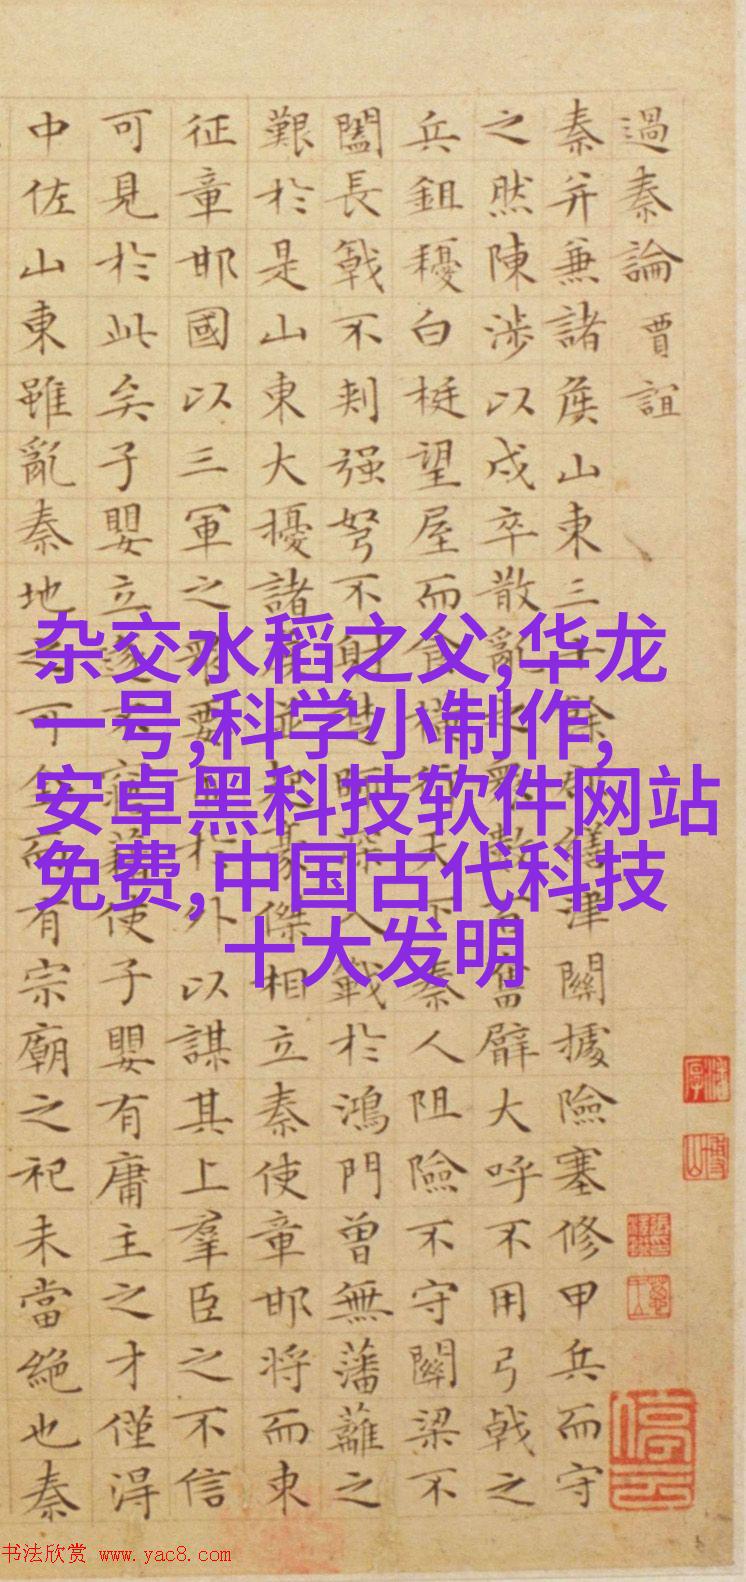 過秦論 賈誼
秦并兼諸侯山東三十餘郡繕津關據險塞修甲兵而守
之然陳涉以戍卒散亂之眾數百奮臂大呼不用弓戟之
兵鉏耰白梃望屋而食橫行天下秦人阻險不守關梁不
闔長戟不刺强弩不射楚師深入戰於鴻門曾無藩籬之
艱於是山東大擾諸侯並起豪傑相立秦使章邯將而東
征章邯國以三軍之眾要市於外以謀其上羣臣之不信
可見於此矣子嬰立遂不寤藉使子嬰有庸主之才僅得
中佐山東雖亂秦地之可全而有宗廟之祀未當絕也秦
杂交水稻之父,华龙
一号,科学小制作,
安卓黑科技软件网站
免费,中国古代科技
十大发明
书法欣赏 www.yac8.com